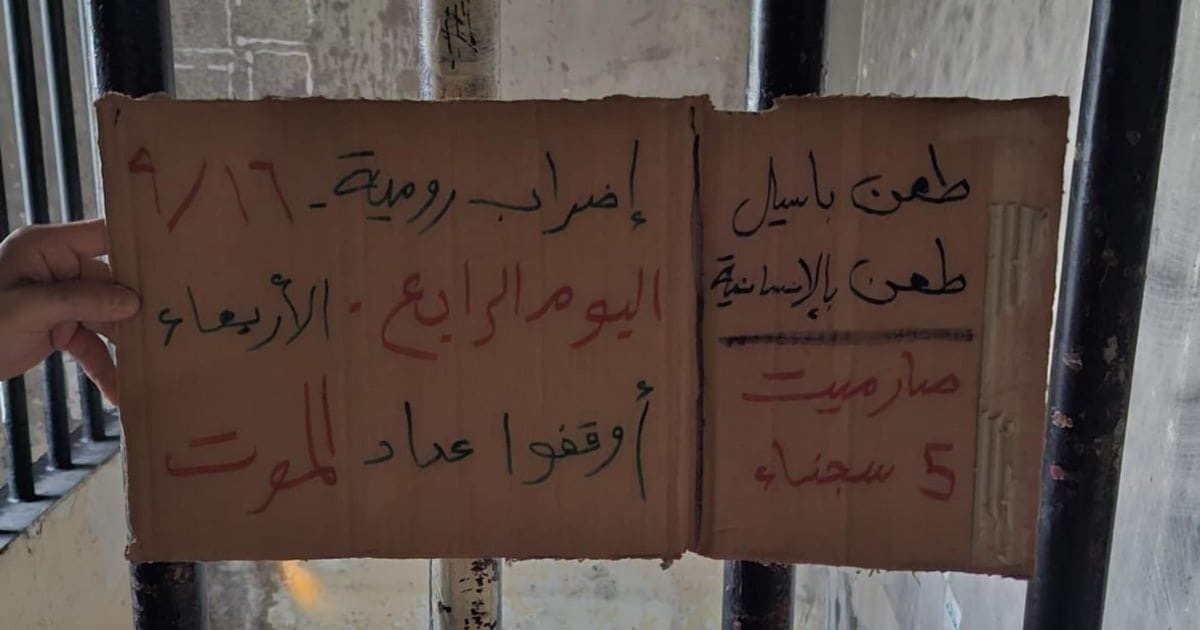 طعن باسيل
طعن بالإنسانية
صار ميت
5 سجناء
إضراب رومية - ٩/١٦
اليوم الرابع . الأربعاء
أوقفوا عداد الموت